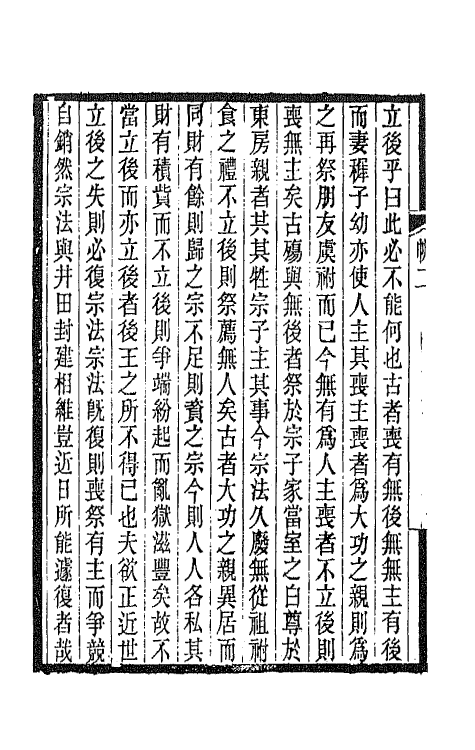 立後乎曰此必不能何也古者喪有無後無無主有後
而妻穉子幼亦使人主其喪主喪者爲大功之親則爲
之再祭朋友虞祔而已今無有爲人主喪者不立後則
喪無主矣古殤與無後者祭於宗子家當室之白尊於
東房親者共其牲宗子主其事今宗法久廢無從祖祔
食之禮不立後則祭薦無人矣古者大功之親異居而
同財有餘則歸之宗不足則資之宗今則人人各私其
財有積貲而不立後則爭端紛起而亂獄滋豐矣故不
當立後而亦立後者後王之所不得已也夫欲正近世
立後之失則必復宗法宗法旣復則喪祭有主而爭競
自銷然宗法與井田封建相維豈近日所能遽復者哉